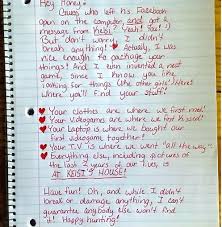 Hey Honey,
Guess who left his Facebook
open on the computer, and got a
message from Keisi? Yeah! You!
But don't worry, I didn't
break anything! Actually, I was
nice enough to package your
things! And I even invented a next
game, since I know you like
looking for things (like other girls) Where's
where you'll find your stuff!
Your clothes are where we first met!
Your videogames are where we first kissed!
Your laptop is where we bought our
first videogame together!
Your T.V is where we went "all the way"
Everything else, including pictures of
the last 2 years of our lives, is
AT KEISI'S HOUSE!
Have fun! Oh, and while I didn't
break or damage anything, I can't
guarantee anybody else won't find
it! Happy hunting!